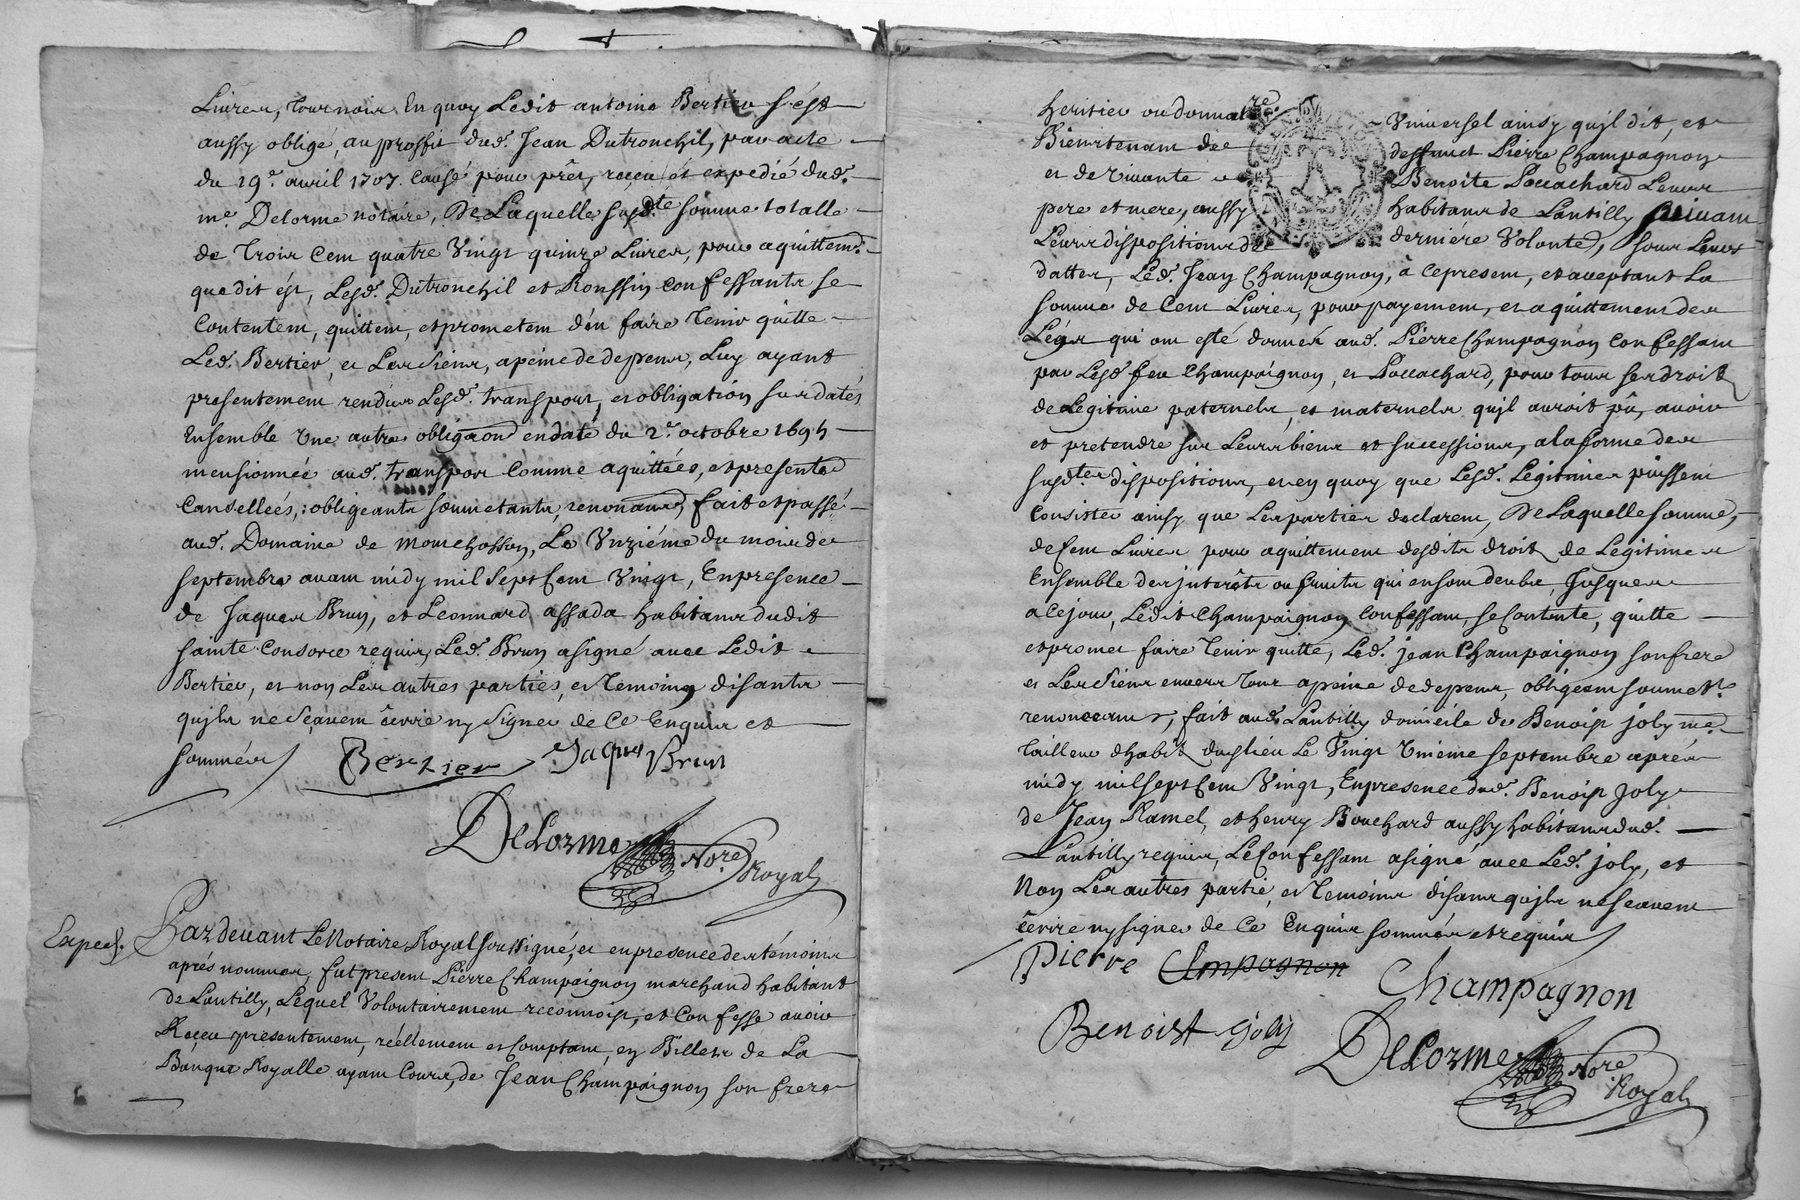 Livres, tournois En quoy Ledit antoine Bertier s'est
aussy obligé, au proffit dud. Jean Dutronchil, par acte
du 19e. avril 1707. causé pour prêt, reçu et expedié dud.
me. Delorme notaire, De Laquelle susdte. somme totalle
de Trois Cent quatre Vingt quinze Livres, pour aquittemt.
que dit est, Lesd. Dutronchil et Roussin Confessants se
Contentent, quittent, et prometent d'en faire Tenir quitte
Led. Bertier, et Les Siens, a peine de depens, Luy ayant
presentement rendus Lesd. transport, et obligation susdatés
Ensemble Une autre obligaon en date du 2e. octobre 1695
mensionnée aud. transport Comme aquittées, et presented
Cansellées, obligeants soumetants, renonants, fait et passé
aud. Domaine de Montchosson, Le Unziéme du mois de
septembre avant midy mil Sept Cent Vingt, En presence
de Jaques Brun, et Leonnard assada habitans dudit
sainte Consorce requis, Led. Brun a signé avec Ledit
Bertier, et non Les autres parties, et Temoins disants
qu'ils ne Sçavent êcrire ny Signer de Ce Enquis et
sommés
Bertier Jaques Brun
DeLorme Nore
Royal
Exped.
Pardevant Le Notaire Royal soussigné, et en presence des témoins
aprés nommés, fut present Pierre Champaignon marchand habitant
de Lantilly, Lequel Volontairement reconnoist, et Confesse avoir
Reçeu presentement, réellement et Comptant, en Billets de La
Banque Royalle ayant Cours, de Jean Champaignon son frere
heritier ou donnatre. Universel ainsy qu'jl dit, et
Bientenant de deffunct Pierre Champagnon
et de Vivante Benoite Poccachard Leurs
pere et mere, aussy habitans de Lantilly suivant
Leurs dispositions de derniére Volonted, sous Leurs
dattes, Led. Jean Champagnon, à Ce present, et acceptant La
somme de Cent Livres, pour payement, et aquittement des
Légs qui ont esté donnés aud. Pierre Champagnon Confessant
par Lesd. feu Champaignon, et Poccachard, pour tous ses droits
de Legitime paternels, et maternels qujl auroit pû, avoir
et pretendre sur Leurs biens et successions, a la forme des
susdtes dispositions, et en quoy que Lesd. Legitimes puissent
Consister ainsy que Les parties declarent, De Laquelle somme,
de Cent Livres pour aquittement desdits droits de Legitimes
Ensemble des jnterêts ou fruits qui en sont deubs, Jusques
a Ce jour, Ledit Champaignon Confessant, se Contente, quitte
et promet faire Tenir quitte, Led. jean Champaignon son frere
et Les Siens envers Tous a peine de depens, obligeant soumet.
renonceant, fait aud. Lantilly domicile de Benoist joly me.
Tailleur d'habits dud lieu Le Vingt Unieme septembre aprés
midy mil sept Cent Vingt, En presence dud. Benoist joly
de Jean Ramel, et henry Bouchard aussy habitans dud.
Lantilly requis, Le Confessant a signé avec Led. joly, et
Non Les autres partie, et Temoins disant qujls ne sçavent
êcrire ny signer de Ce Enquis sommés et requis
Pierre Champagnon
Benoist Joly
DeLorme Nore
Royal